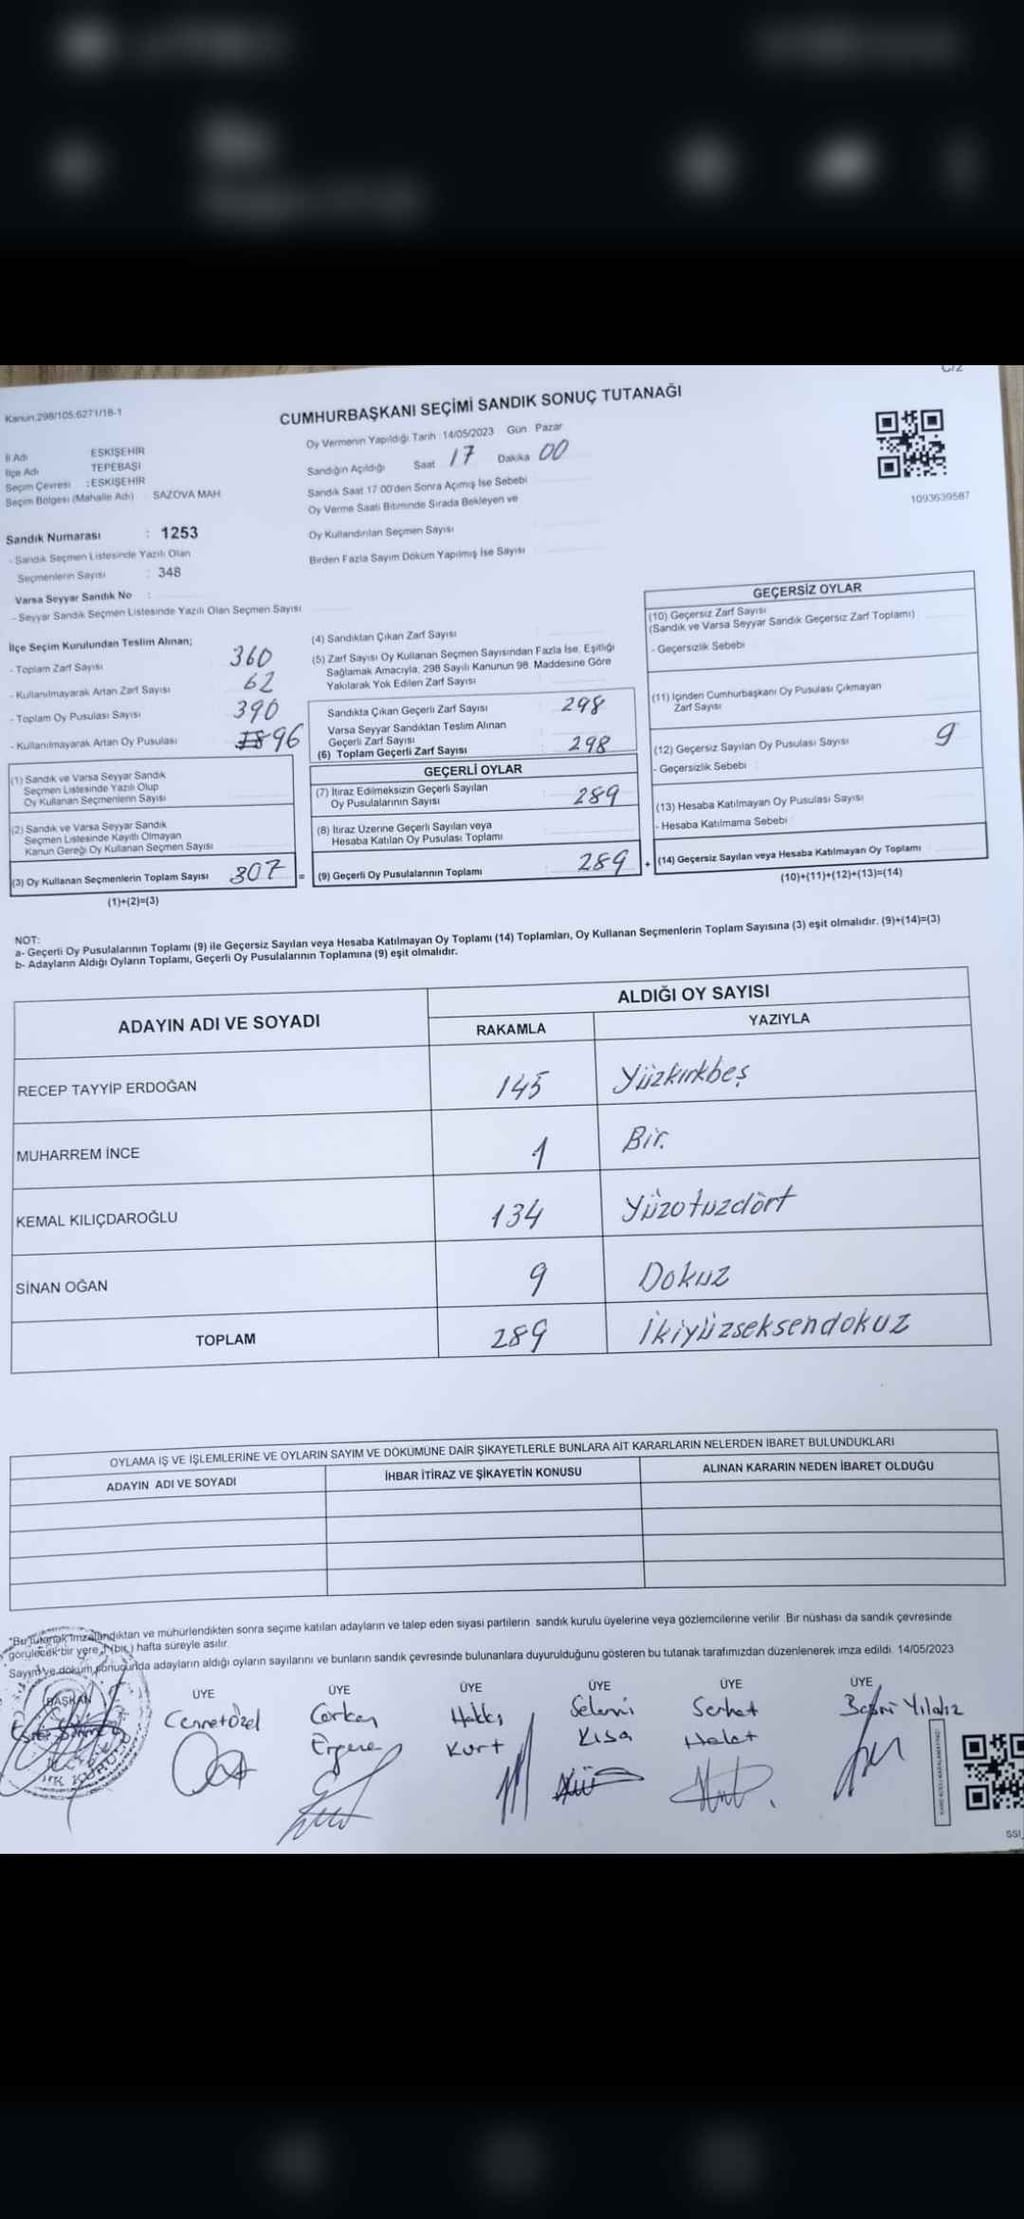 C/2
Kanun.298/105.6271/18-1
CUMHURBAŞKANI SEÇİMİ SANDIK SONUÇ TUTANAĞI
Oy Vermenin Yapıldığı Tarih 14/05/2023 Gün Pazar
İl Adı ESKİŞEHİR
İlçe Adı TEPEBAŞI
Seçim Çevresi : ESKİŞEHİR
Seçim Bölgesi (Mahalle Adı) SAZOVA MAH
Sandığın Açıldığı Saat 17 Dakika 00
Sandık Saat 17 00'den Sonra Açımış İse Sebebi
Oy Verme Saati Bitiminde Sırada Bekleyen ve
Oy Kullandırılan Seçmen Sayısı
Birden Fazla Sayım Döküm Yapılmış İse Sayısı
1093639587
Sandık Numarası : 1253
- Sandık Seçmen Listesinde Yazılı Olan
Seçmenlerin Sayısı : 348
Varsa Seyyar Sandık No :
- Seyyar Sandık Seçmen Listesinde Yazılı Olan Seçmen Sayısı
İlçe Seçim Kurulundan Teslim Alınan;
- Toplam Zarf Sayısı 360
- Kullanılmayarak Artan Zarf Sayısı 62
- Toplam Oy Pusulası Sayısı 390
- Kullanılmayarak Artan Oy Pusulası 96
(1) Sandık ve Varsa Seyyar Sandık
Seçmen Listesinde Yazılı Olup
Oy Kullanan Seçmenlerin Sayısı
(2) Sandık ve Varsa Seyyar Sandık
Seçmen Listesinde Kayıtlı Olmayan
Kanun Gereği Oy Kullanan Seçmen Sayısı
(3) Oy Kullanan Seçmenlerin Toplam Sayısı 307 =
(1)+(2)=(3)
(4) Sandıktan Çıkan Zarf Sayısı
(5) Zarf Sayısı Oy Kullanan Seçmen Sayısından Fazla İse, Eşitliği
Sağlamak Amacıyla, 298 Sayılı Kanunun 98. Maddesine Göre
Yakılarak Yok Edilen Zarf Sayısı
Sandıkta Çıkan Geçerli Zarf Sayısı 298
Varsa Seyyar Sandıktan Teslim Alınan
Geçerli Zarf Sayısı
(6) Toplam Geçerli Zarf Sayısı 298
GEÇERLİ OYLAR
(7) İtiraz Edilmeksizin Geçerli Sayılan
Oy Pusulalarının Sayısı 289
(8) İtiraz Üzerine Geçerli Sayılan veya
Hesaba Katılan Oy Pusulası Toplamı
(9) Geçerli Oy Pusulalarının Toplamı 289 +
GEÇERSİZ OYLAR
(10) Geçersiz Zarf Sayısı
(Sandık ve Varsa Seyyar Sandık Geçersiz Zarf Toplamı)
- Geçersizlik Sebebi
(11) İçinden Cumhurbaşkanı Oy Pusulası Çıkmayan
Zarf Sayısı
(12) Geçersiz Sayılan Oy Pusulası Sayısı 9
- Geçersizlik Sebebi
(13) Hesaba Katılmayan Oy Pusulası Sayısı
- Hesaba Katılmama Sebebi
(14) Geçersiz Sayılan veya Hesaba Katılmayan Oy Toplamı
(10)+(11)+(12)+(13)=(14)
NOT:
a- Geçerli Oy Pusulalarının Toplamı (9) ile Geçersiz Sayılan veya Hesaba Katılmayan Oy Toplamı (14) Toplamları, Oy Kullanan Seçmenlerin Toplam Sayısına (3) eşit olmalıdır. (9)+(14)=(3)
b- Adayların Aldığı Oyların Toplamı, Geçerli Oy Pusulalarının Toplamına (9) eşit olmalıdır.
ADAYIN ADI VE SOYADI
ALDIĞI OY SAYISI
RAKAMLA YAZIYLA
RECEP TAYYİP ERDOĞAN 145 Yüzkırkbeş
MUHARREM İNCE 1 Bir.
KEMAL KILIÇDAROĞLU 134 Yüzotuzdört
SİNAN OĞAN 9 Dokuz
TOPLAM 289 İkiyüzseksendokuz
OYLAMA İŞ VE İŞLEMLERİNE VE OYLARIN SAYIM VE DÖKÜMÜNE DAİR ŞİKAYETLERLE BUNLARA AİT KARARLARIN NELERDEN İBARET BULUNDUKLARI
ADAYIN ADI VE SOYADI İHBAR İTİRAZ VE ŞİKAYETİN KONUSU ALINAN KARARIN NEDEN İBARET OLDUĞU
"Bu tutanak imzalandıktan ve mühürlendikten sonra seçime katılan adayların ve talep eden siyasi partilerin sandık kurulu üyelerine veya gözlemcilerine verilir. Bir nüshası da sandık çevresinde
görülecek bir yere 1 (bir) hafta süreyle asılır.
Sayım ve döküm sonucunda adayların aldığı oyların sayılarını ve bunların sandık çevresinde bulunanlara duyurulduğunu gösteren bu tutanak tarafımızdan düzenlenerek imza edildi. 14/05/2023
BAŞKAN ÜYE ÜYE ÜYE ÜYE ÜYE ÜYE
Cennet Özel Hakkı Selami Serhat Yıldız
Kurt Kısa
KURULU
SSI